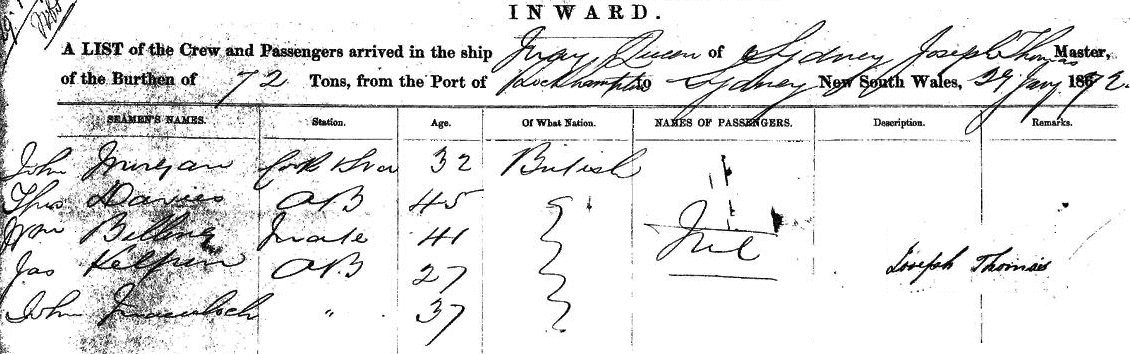 INWARD.
A LIST of the Crew and Passengers arrived in the ship May Queen of Sydney Joseph Thomas Master,
of the Burthen of 72 Tons, from the Port of Rockhampton to Sydney New South Wales, 29 Jany 1872.
SEAMEN'S NAMES. Station. Age. Of What Nation. NAMES OF PASSENGERS. Description. Remarks.
John Morgan 32 British
Thos Davies AB 45 "
Wm Billing Mate 41 " Nil
Jas AB 27 " Joseph Thomas
John " 37 "